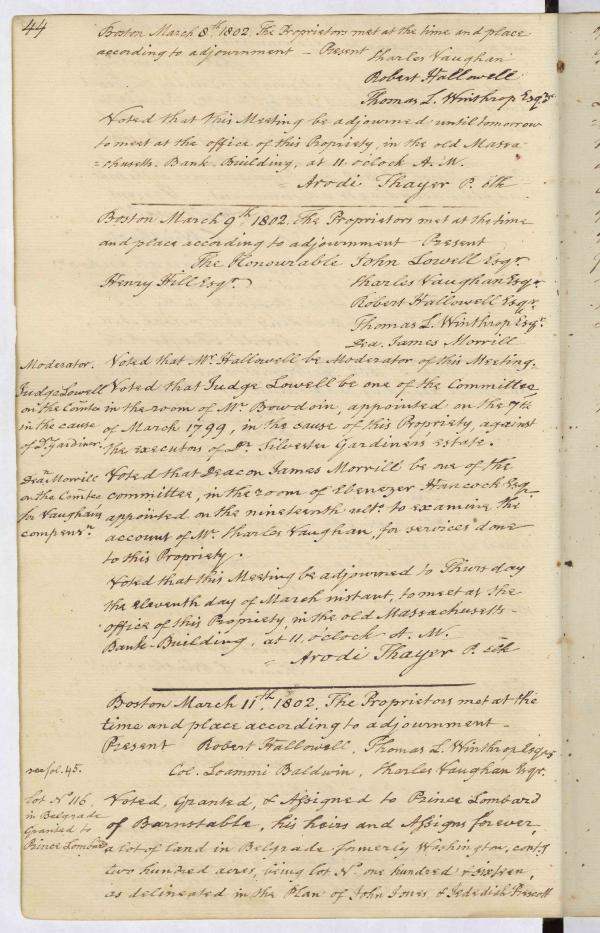 44
Boston March 8th. 1802. The Proprietors met at the time and place
according to adjournment - Present Charles Vaughan
Robert Hallowell
Thomas L. Winthrop Esqrs.
Voted that this Meeting be adjourned until tomorrow
to meet at the office of this Propriety, in the old Massa
=chusetts Bank-Building, at 11. o'clock A. M.
Arodi Thayer P. Clk
Boston March 9th. 1802. The Proprietors met at the time
and place according to adjournment Present
The Honourable John Lowell Esqr.
Henry Hill Esqr. Charles Vaughan Esqr.
Robert Hallowell Esqr.
Thomas L. Winthrop Esqr.
Dea. James Morrill
Moderator. Voted that Mr. Hallowell be Moderator of this Meeting.
Judge Lowell
on the Comtee
in the cause
of Dr. Gardiner.
Voted that Judge Lowell be one of the Committee
in the room of Mr. Bowdoin, appointed on the 7th
of March 1799, in the cause of this Propriety, against
the executors of Dr. Silvester Gardiners estate.
Dean. Morrill
on the Comtee
for Vaughan's
compensn.
Voted that Deacon James Morrill be one of the
committee, in the room of Ebenezer Hancock Esqr
appointed on the nineteenth ulto. to examine the
account of Mr. Charles Vaughan, for services done
to this Propriety.
Voted that this Meeting be adjourned to Thursday
the eleventh day of March instant, to meet at the
office of this Propriety, in the old Massachusetts-
Bank-Building, at 11, o'clock A. M.
Arodi Thayer P. Clk
Boston March 11th. 1802. The Proprietors met at the
time and place according to adjournment -
Present Robert Hallowell, Thomas L. Winthrop Esqrs
Col. Loammi Baldwin, Charles Vaughan Esqr.
see fol. 45.
lot No. 116
in Belgrade
Granted to
Prince Lombard
Voted, Granted, & Assigned to Prince Lombard
of Barnstable, his heirs and Assigns forever,
a lot of land in Belgrade formerly Washington, contg
two hundred acres, being lot No. one hundred & sixteen,
as delineated in the Plan of John Jones, & Jedediah Prescott